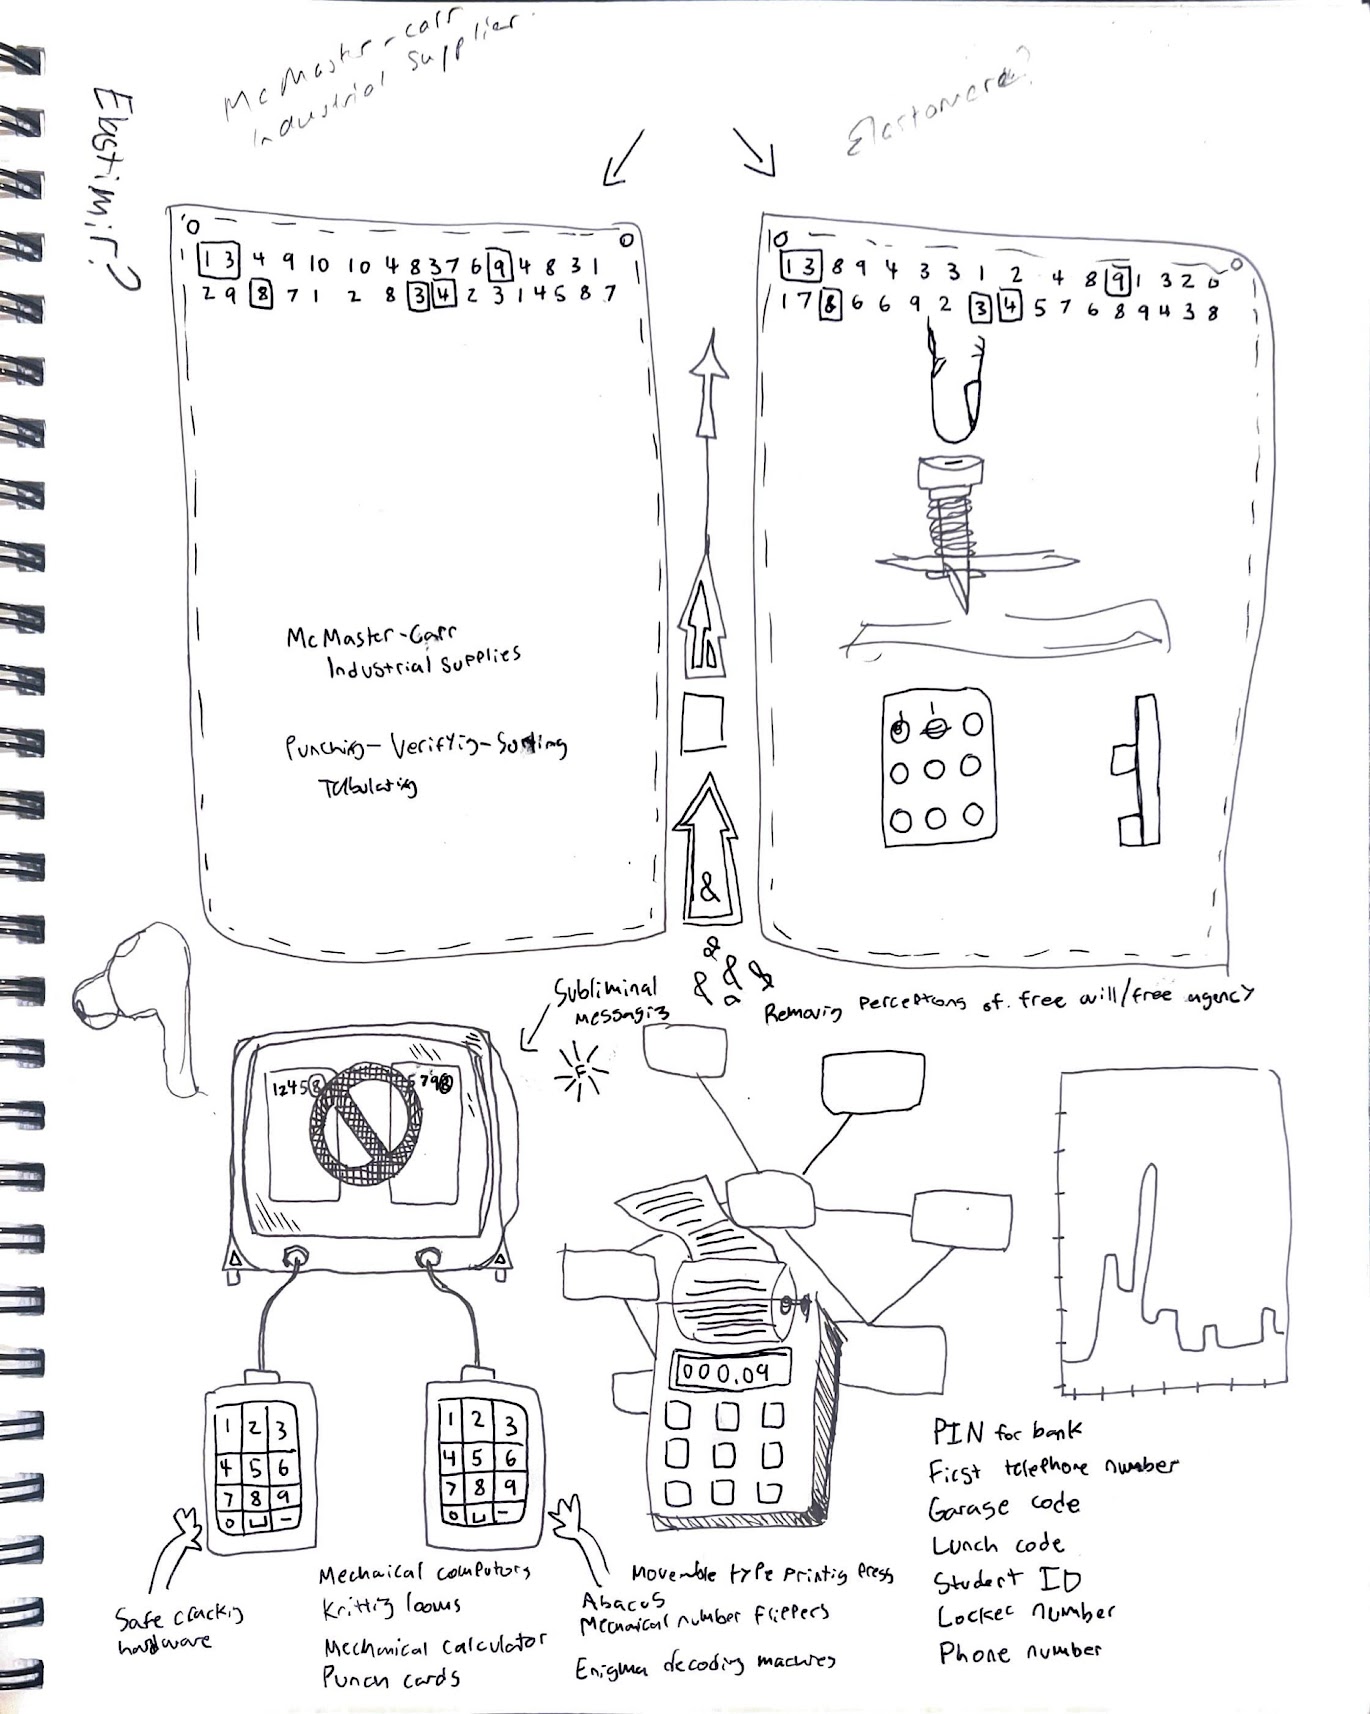 McMaster-carr
Industrial Supplier.
Elastimir?
Elastomere?
1 3 4 9 10 10 4 8 3 7 6 9 4 8 3 1
2 9 8 7 1 2 8 3 4 2 3 1 4 5 8 7
1 3 8 9 4 3 3 1 2 4 8 9 1 3 2 0
1 7 8 6 6 9 2 3 4 5 7 6 8 9 4 3 8
McMaster-Carr
Industrial Supplies
Punching-Veriftig-Sorting
Tabulatig
&
&
& & &
Subliminal
messagig
Removig perceptions of free will/free agency
F
12458
5798
000.09
1 2 3
4 5 6
7 8 9
0 -
1 2 3
4 5 6
7 8 9
0 -
Safe crackig
hardware
Mechaical computors
Knittig looms
Mechanical calculator
Punch cards
Moveable type printig press
Abacus
Mechaical number flippers
Enigma decodig machines
PIN for bank
First telephone number
Garage code
Lunch code
Student ID
Locker number
Phone number